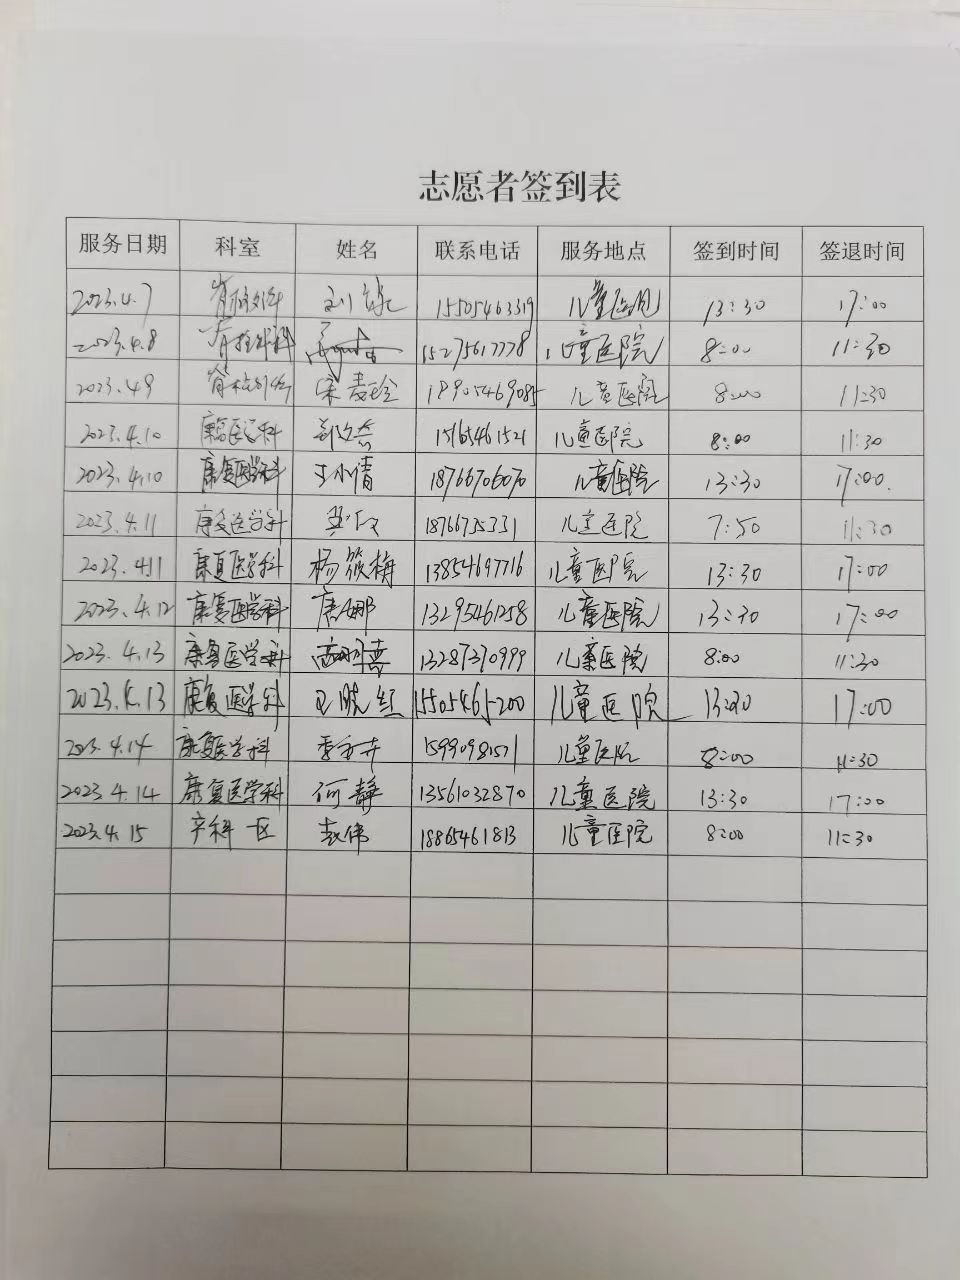 志愿者签到表
服务日期 科室 姓名 联系电话 服务地点 签到时间 签退时间
2023.4.7 脊柱外科 刘 15505463319 儿童医院 13:30 17:00
2023.4.8 脊柱外科 15275617778 儿童医院 8:00 11:30
2023.4.9 脊柱外科 宋麦玲 18905469085 儿童医院 8:00 11:30
2023.4.10 康复医学科 15165461521 儿童医院 8:00 11:30
2023.4.10 康复医学科 王小倩 18766706070 儿童医院 13:30 17:00
2023.4.11 康复医学科 18766735331 儿童医院 7:50 11:30
2023.4.11 康复医学科 杨筱梅 13854697716 儿童医院 13:30 17:00
2023.4.12 康复医学科 唐娜 13295461258 儿童医院 13:30 17:00
2023.4.13 康复医学科 13287370999 儿童医院 8:00 11:30
2023.4.13 康复医学科 王晓红 15505465200 儿童医院 13:30 17:00
2023.4.14 康复医学科 15990981571 儿童医院 8:00 11:30
2023.4.14 康复医学科 何静 13561032870 儿童医院 13:30 17:00
2023.4.15 产科一区 赵伟 18865461813 儿童医院 8:00 11:30